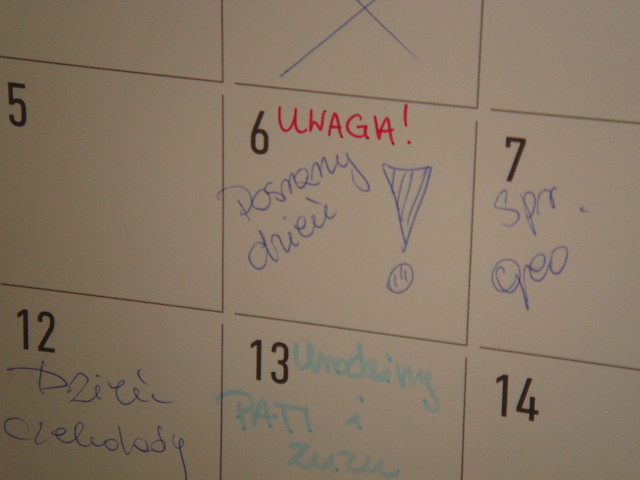 5
6 UWAGA!
Posrany
dzień
7
Spr.
geo
12
Dzień
czekolady
13 Urodziny
PATI i
ZUZU
14